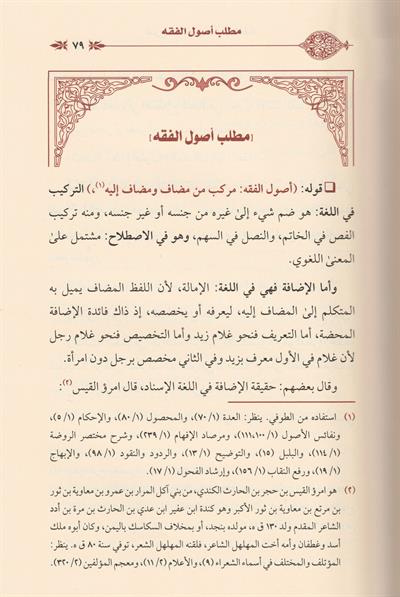 مطلب أصول الفقه
٧٩
[مطلب أصول الفقه]
❑ قوله: (أصول الفقه: مركب من مضاف ومضاف إليه(١)،) التركيب
في اللغة: هو ضم شيء إلى غيره من جنسه أو غير جنسه، ومنه تركيب
الفص في الخاتم، والنصل في السهم، وهو في الاصطلاح: مشتمل على
المعنى اللغوي.
وأما الإضافة فهي في اللغة: الإمالة، لأن اللفظ المضاف يميل به
المتكلم إلى المضاف إليه، ليعرفه أو يخصصه، إذ ذاك فائدة الإضافة
المحضة، أما التعريف فنحو غلام زيد وأما التخصيص فنحو غلام رجل
لأن غلام في الأول معرف بزيد وفي الثاني مخصص برجل دون امرأة.
وقال بعضهم: حقيقة الإضافة في اللغة الإسناد، قال امرؤ القيس(٢):
(١) استفاده من الطوفي. ينظر: العدة (٧٠/١)، والمحصول (٨٠/١)، والإحكام (٥/١)،
ونفائس الأصول (١١١،١٠٠/١)، ومرصاد الإفهام (٢٣٩/١)، وشرح مختصر الروضة
(١١٤/١)، والبلبل (١٥)، والتوضيح (١٣/١)، والردود والنقود (٩٨/١)، والإبهاج
(١٩/١)، ورفع النقاب (١٥٦/١)، وإرشاد الفحول (١٧/١).
(٢) هو امرؤ القيس بن حجر بن الحارث الكندي، من بني آكل المرار بن عمرو بن معاوية بن ثور
بن مرتع بن معاوية بن ثور الأكبر وهو كندة ابن عفير ابن عدي بن الحارث بن مرة بن أدد
الشاعر المقدم ولد ١٣٠ ق ه، مولده بنجد، أو بمخلاف السكاسك باليمن، وكان أبوه ملك
أسد وغطفان وأمه أخت المهلهل الشاعر، فلقنه المهلهل الشعر، توفي سنة ٨٠ ق ه. ينظر:
المؤتلف والمختلف في أسماء الشعراء (٩)، والأعلام (١١/٢)، ومعجم المؤلفين (٣٢٠/٢).